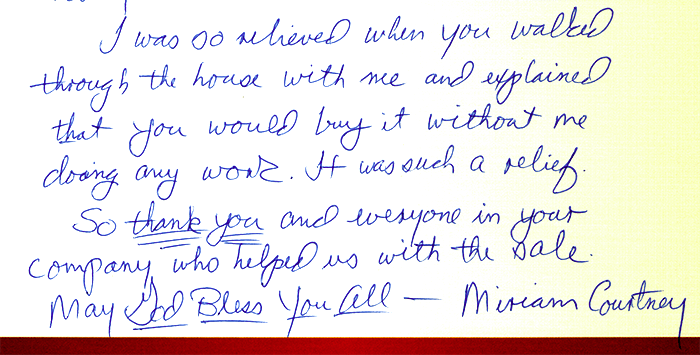 I was so relieved when you walked
through the house with me and explained
that you would buy it without me
doing any work. It was such a relief.
So thank you and everyone in your
company who helped us with the sale.
May God Bless You All — Miriam Courtney